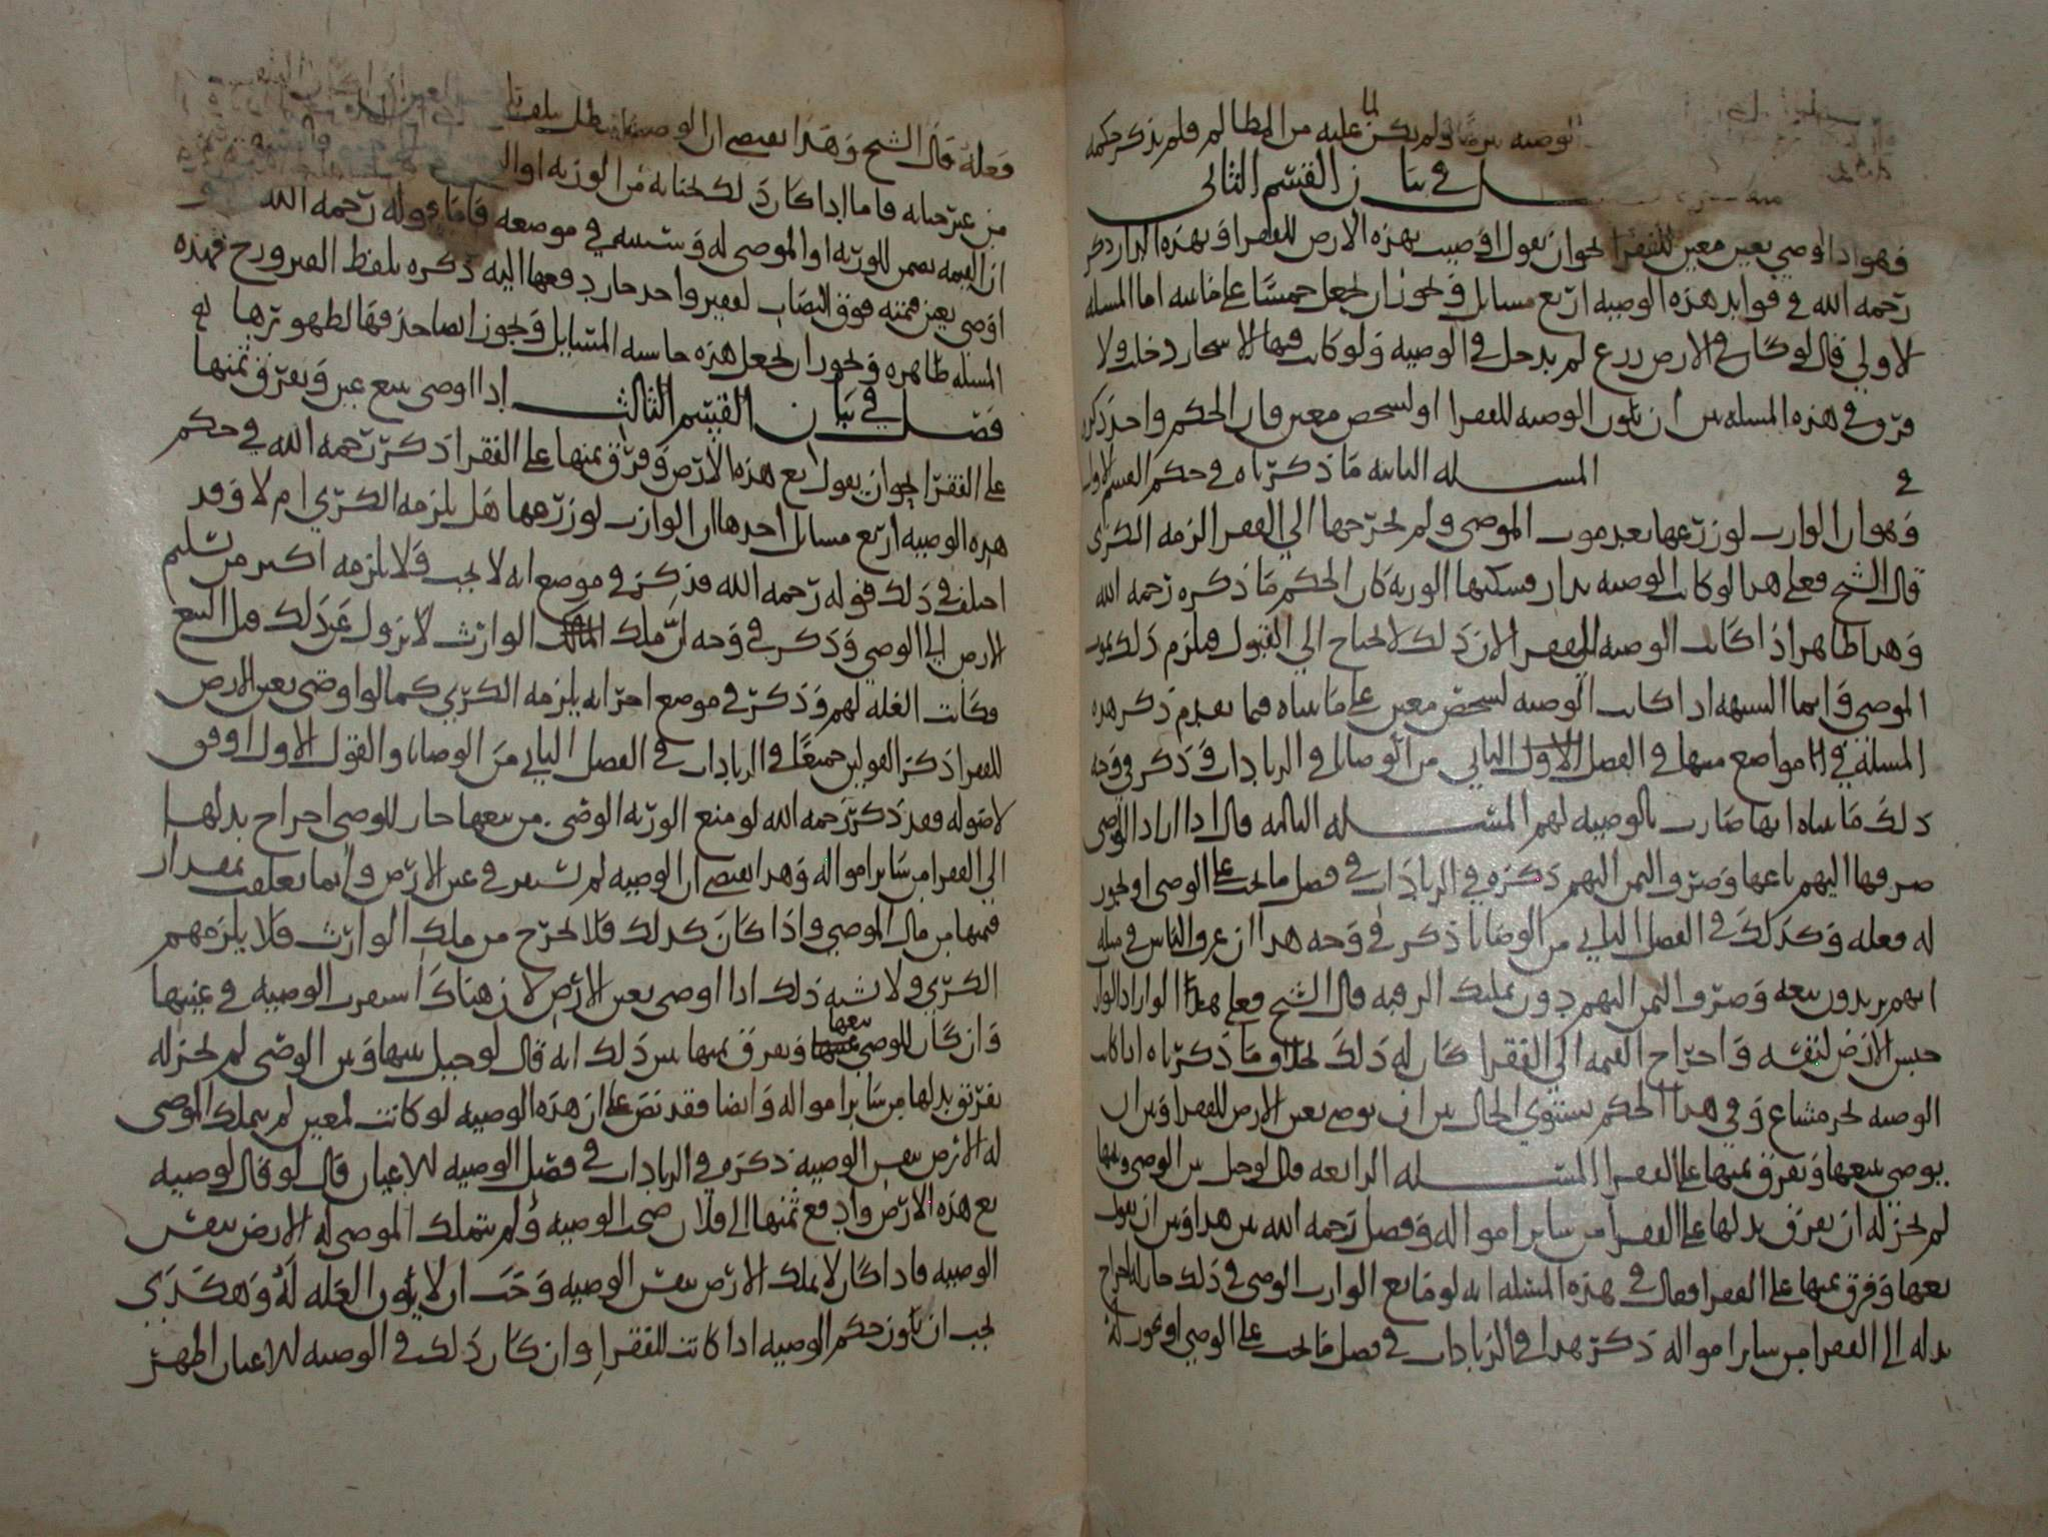 الوصيه يوما ولم يكن لما عليه من المظالم فلم يذكر حكمه
في بيان القسم الثاني
فهو اذا اوصى بعين معين للفقرا نحو ان يقول اوصيت بهذه الارض للفقرا او بهذه الدار ذكر
رحمه الله في فوايد هذه الوصيه اربع مسايل ويجوز ان يجعل خمسا على ما نبينه اما المسله
الاولى قال لو كان في الارض زرع لم يدخل في الوصيه ولو كانت فيها الاشجار دخلت ولا
فرق في هذه المسله بين ان يكون الوصيه للفقرا او لشخص معين فان الحكم واحد ذكره
في المسله الثانيه ما ذكرناه في حكم القسم الاول
وهو ان الوارث لو زرعها بعد موت الموصي ولم يخرجها الى الفقرا لزمه الكرى
قال الشيخ فعلى هذا لو كانت الوصيه بدار فسكنها الورثه كان الحكم ما ذكره رحمه الله
وهذا ظاهر اذا كانت الوصيه للفقرا لان ذلك لا يحتاج الى القبول فيلزم ذلك بموت
الموصي وانما الشبهه اذا كانت الوصيه لشخص معين على ما بيناه فيما تقدم ذكر هذه
المسله في مواضع منها في الفصل الاول الثاني من الوصايا و في الزيادات وذكر في وجه
ذلك ما بيناه انها صارت بالوصيه لهم المسله الثالثه قال اذا اراد الوصي
صرفها اليهم باعها وصرف الثمن اليهم ذكره في الزيادات في فصل ما يجب على الوصي او يجوز
له فعله وكذلك في الفصل الثاني من الوصايا ذكر في وجه هذا ان عرف الناس في مثله
انهم يريدون بيعه وصرف الثمن اليهم دون تمليك الرقبه قال الشيخ فعلى هذا لو اراد الوارث
حبس الارض لنفسه واخراج القيمه الى الفقرا كان له ذلك بخلاف ما ذكرناه اذا كانت
الوصيه بجزء مشاع وفي هذا الحكم يستوي الحال بين ان يوصي بعين الارض للفقرا وبين ان
يوصي ببيعها وتفرق ثمنها على الفقرا المسله الرابعه قال لو حيل بين الوصي وبينها
لم يجز له ان يفرق بدلها على الفقرا من ساير امواله وفصل رحمه الله بين هذا وبين ان يقول
بعها وفرق ثمنها على الفقرا فقال في هذه المسله انه لو مانع الوارث الوصي في ذلك جاز له اخراج
بدله الى الفقرا من ساير امواله ذكر هذا في الزيادات في فصل ما يجب على الوصي او يجوز له
فعله قال الشيخ وهذا يقتضي ان الوصيه تبطل بتلف
من غير جنايه فاما اذا كان ذلك بجنايه من الورثه او
ان القيمه تضمن للورثه او الموصى له وسنبينه في موضعه فاما قوله رحمه الله
اوصى بعين قيمته فوق النصاب لفقير واحد جاز دفعها اليه ذكره بلفظ الفقير ورح فهذه
المسله ظاهره ويجوز ان يجعل هذه خامسه المسايل ويجوز ايضا حذفها لظهورها
فصل في بيان القسم الثالث اذا اوصى ببيع عين وتفرق ثمنها
على الفقرا نحو ان يقول بع هذه الارض وفرق ثمنها على الفقرا ذكر رحمه الله في حكم
هذه الوصيه اربع مسايل احدها ان الوارث لو زرعها هل يلزمه الكرى ام لا وقد
اختلف في ذلك قوله رحمه الله فذكر في موضع انه لا يجب ولا يلزمه اكثر من تسليم
الارض الى الوصي وذكر في وجهه ان ملك الوارث لا يزول عن ذلك قبل البيع
فكانت الغله لهم وذكر في موضع اخر انه يلزمه الكرى كما لو اوصى بعين الارض
للفقرا ذكر القولين جميعا في الزيادات في الفصل الثاني من الوصايا والقول الاول اوفق
لاصوله فقد ذكر رحمه الله لو منع الورثه الوصي من بيعها جاز للوصي اخراج بدلها
الى الفقرا من ساير امواله وهذا يقتضي ان الوصيه لم تستقر في عين الارض وانما تعلقت بمقدار
قيمتها من مال الموصي واذا كان كذلك فلا يخرج من ملك الوارث فلا يلزمهم
الكرى ولا يشبه ذلك اذا اوصى بعين الارض لان هناك استقرت الوصيه في عينها
وان كان للوصي بيعها وتفرق ثمنها يبين ذلك انه قال لو حيل بينها وبين الوصي لم يجز له
تفريق بدلها من ساير امواله وايضا فقد نص على ان هذه الوصيه لو كانت لمعين لم يملك الموصى
له الارض بنفس الوصيه ذكره في الزيادات في فصل الوصيه للاعيان قال لو قال لوصيه
بع هذه الارض وادفع ثمنها الى فلان صحت الوصيه ولم يتملك الموصى له الارض بنفس
الوصيه فاذا كان لا يملك الارض بنفس الوصيه وجب ان لا يكون الغله له وهكذى
يجب ان يكون حكم الوصيه اذا كانت للفقرا وان كان ذلك في الوصيه للاعيان اظهر